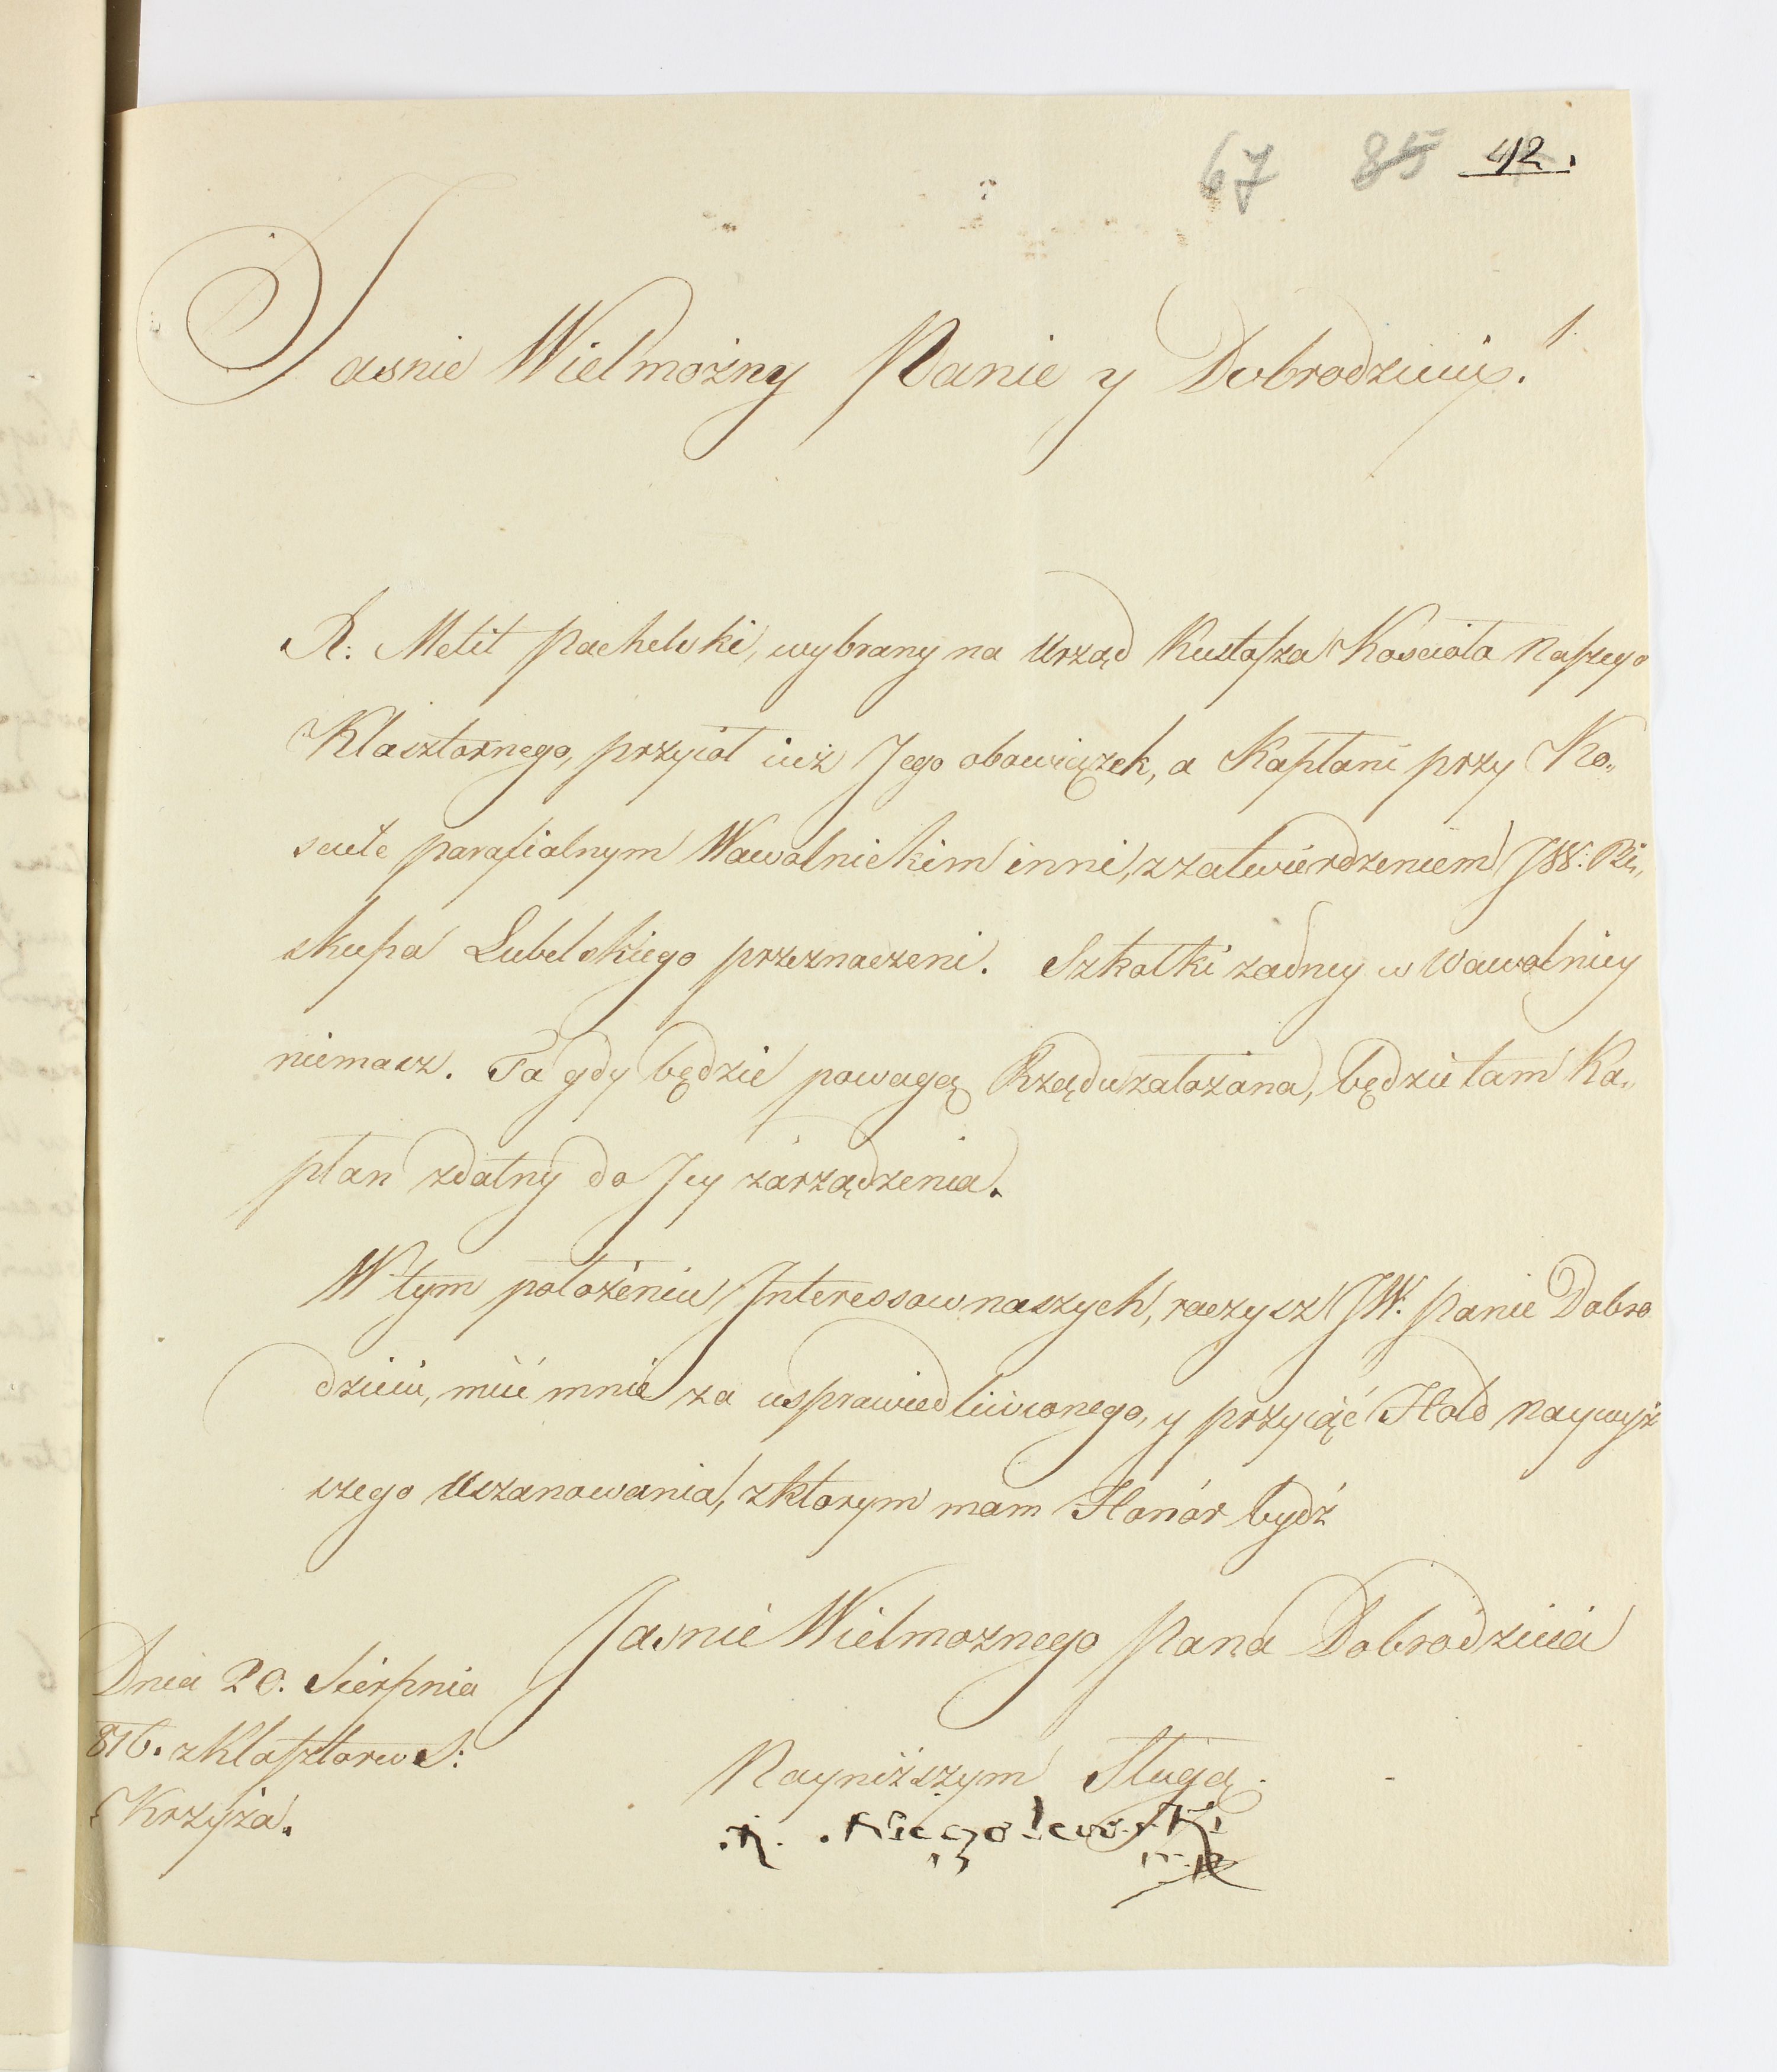 67 85 42.
Jasnie Wielmożny Panie y Dobrodzieiu!
X. Metit Pachelski, wybrany na Urząd Kustosza Kosciola Naszego
Klasztornego, przyiol iuż Jego obowiązek, a Kapłani przy Ko„
sciele parafialnym Wawolnickim inni, z zatwierdzeniem JW: Bi„
skupa Lubelskiego przeznaczeni. Szkołki zadney w Wawolnicy
niemasz. Ta gdy będzie powagą Rządu założona, będzie tam Ka„
płan zdatny do Jey zarządzenia.
W tym położeniu Interessow naszych, raczysz JW. Panie Dobro
dzieiu, mieć mnie za usprawiedliwionego, y przyiąć Hołd naywyż
szego Uszanowania, z ktorym mam Honor bydź
Jasnie Wielmoznego Pana Dobrodzieia
Dnia 20. Sierpnia
816. z Klasztoru S:
Krzyża.
Nayniższym Sługą.
X. Niegolewski
mp